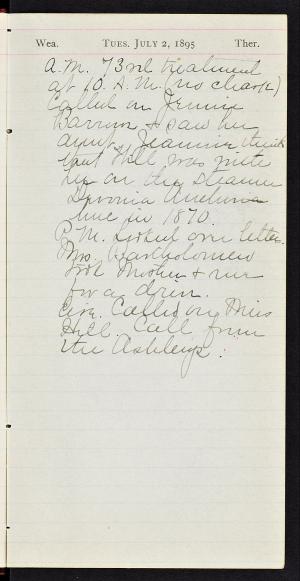 Wea. TUES. JULY 2, 1895 Ther.
A.M. 73rd treatment
at 10. A.M. (no charge)
Called on Jennie
Barrum & saw her
aunt Jeannie thinks
that Will was with
her on the steamer
Devonia Anchor
line in 1870.
P.M. Looked over letters.
Mrs. Bartholomew
took Mother & me
for a drive.
Eve. Called on Miss
Hill. Call from
the Ashleys.